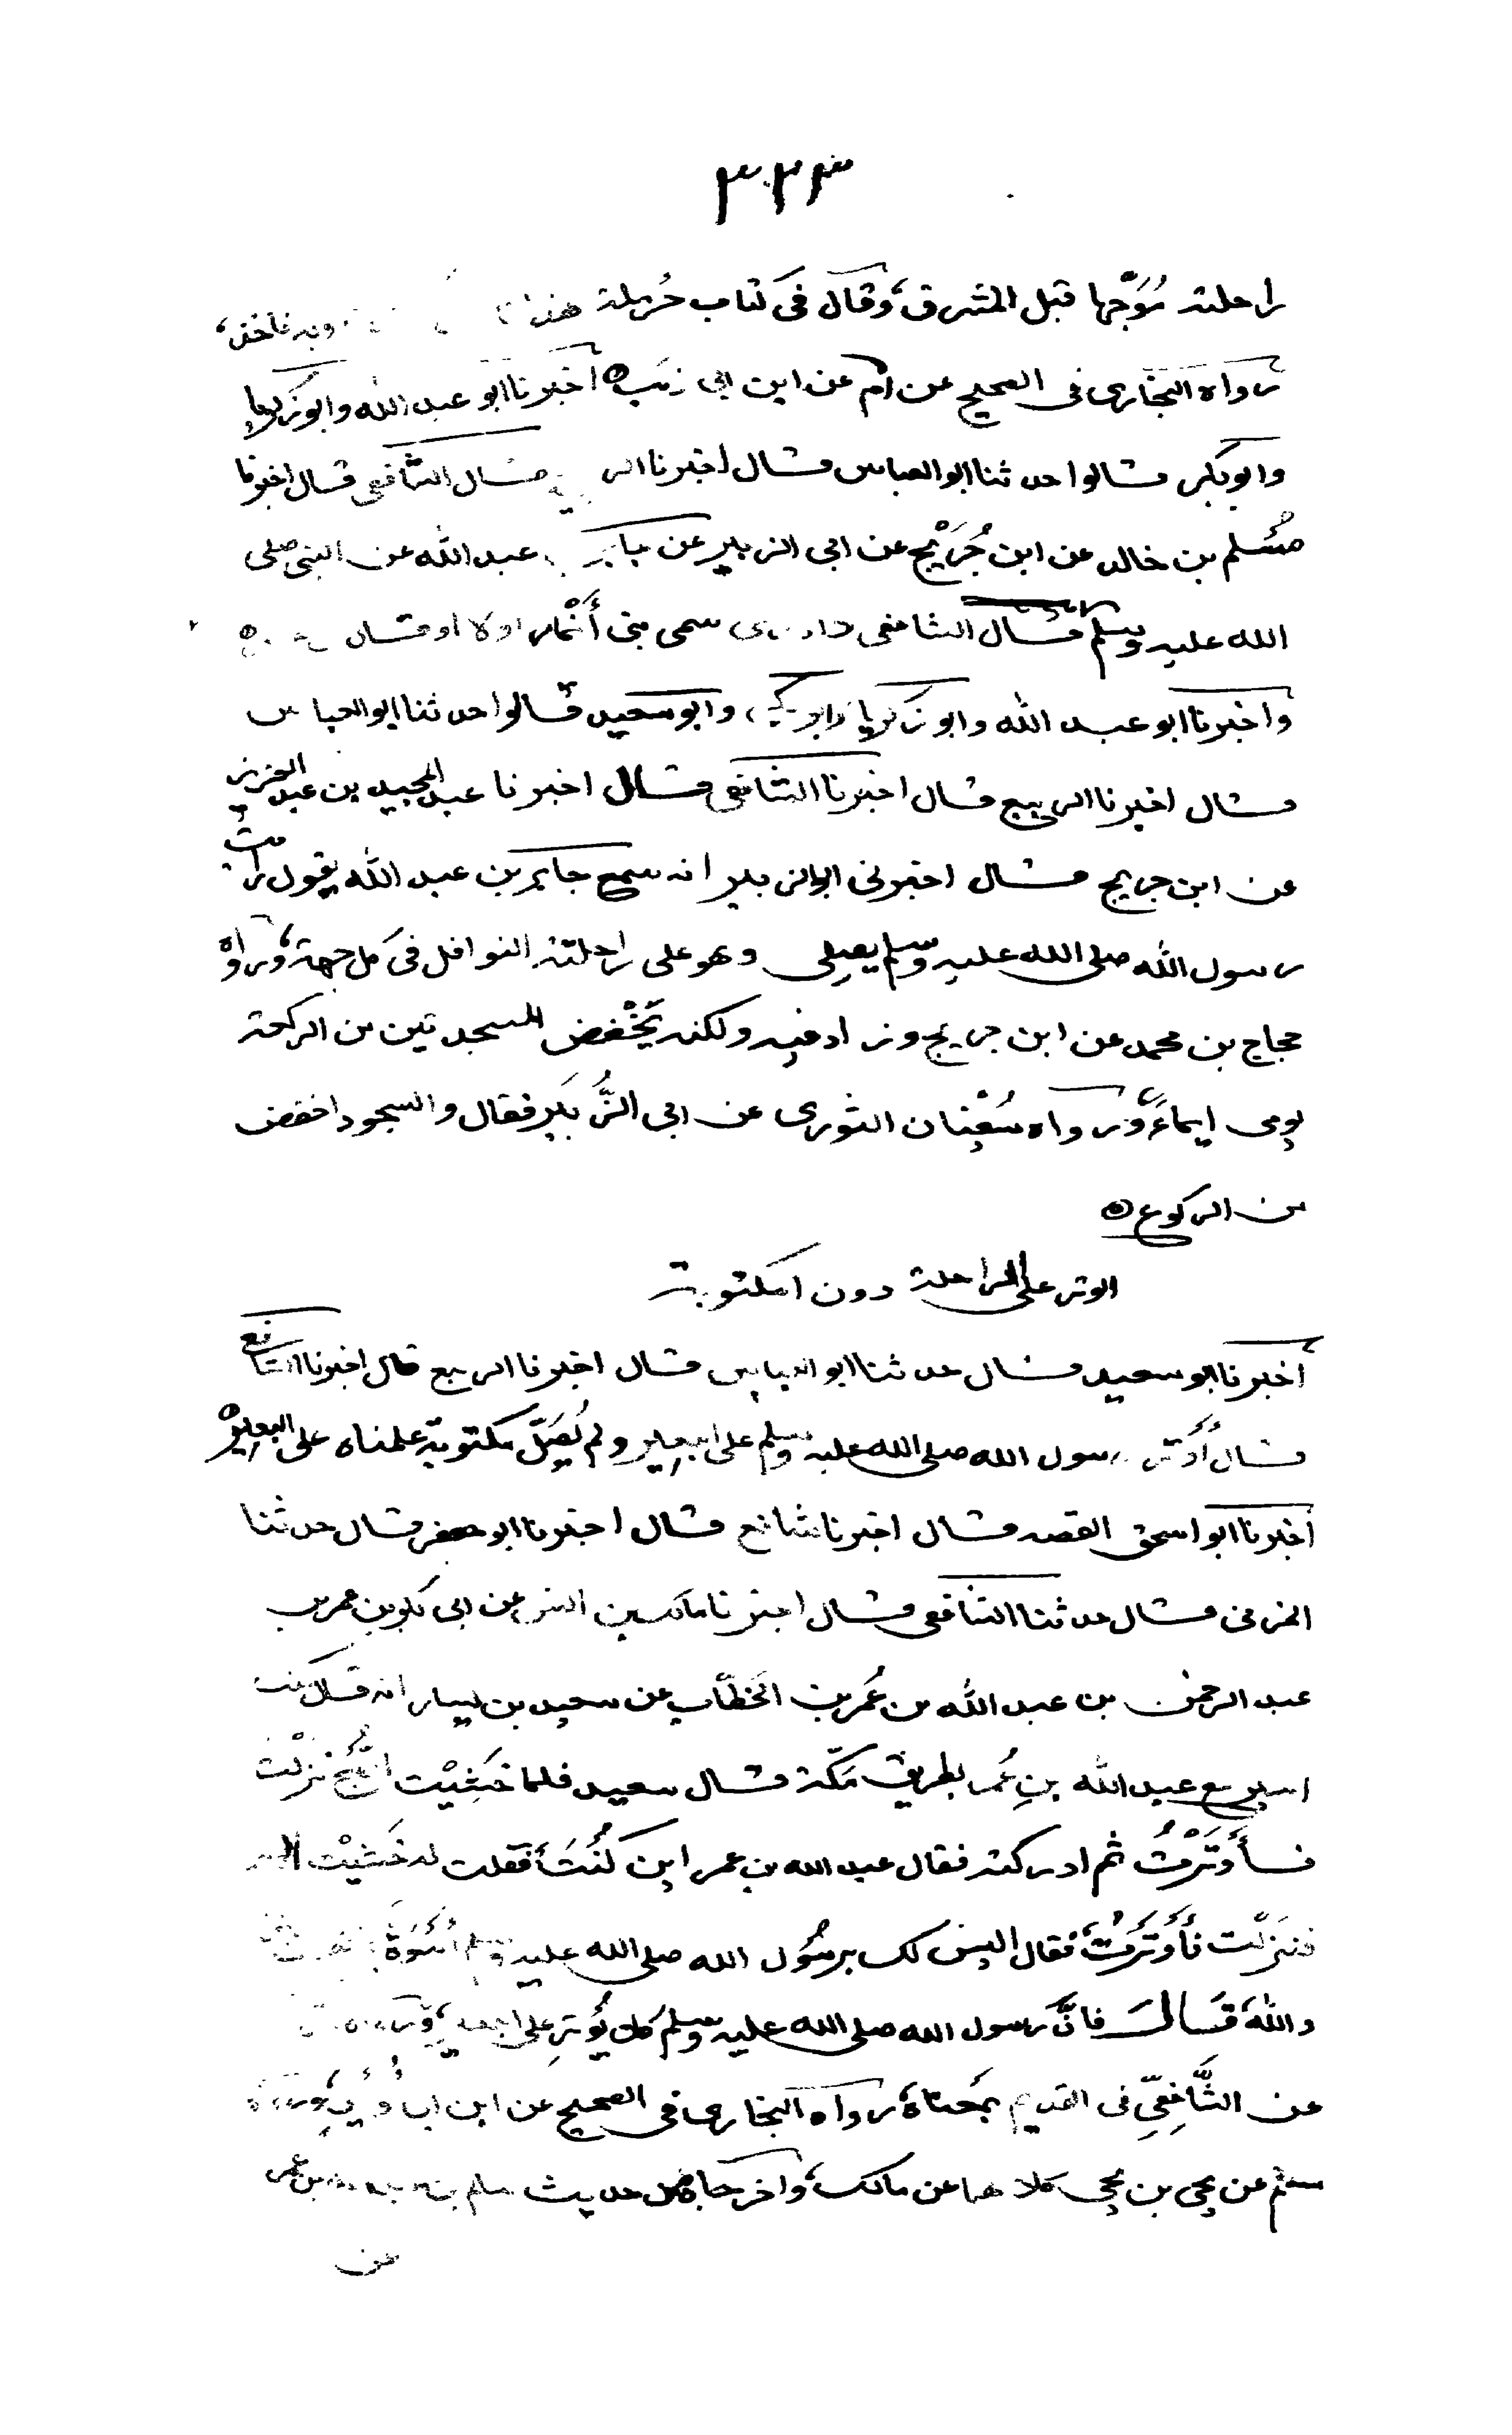 ٣٢٣
راحلته مُوَجِّها قبل المشرق، وقال فى كتاب حُرملة هذا وبه ناخذ،
رواه البخارى فى الصحيح عن آدم عن ابن ابى ذئب ه اخبرنا ابو عبد الله وابو زكريا
وابو بكر قالوا حدثنا ابو العباس قال اخبرنا الربيع قال الشافعى قال اخبرنا
مُسْلم بن خالد عن ابن جُرَيْج عن ابى الزبير عن جابر عبد الله عن النبى صلى
الله عليه وسلم قال الشافعى سمى بنى أَنْمار اولا او قال
واخبرنا ابو عبد الله وابو زكريا وابو بكر وابو سعيد قالوا حدثنا ابو العباس
قال اخبرنا الربيع قال اخبرنا الشافعى قال اخبرنا عبد المجيد بن عبد العزيز
عن ابن جريج قال اخبرنى ابو الزبير انه سمع جابر بن عبد الله يقول رايت
رسول الله صلى الله عليه وسلم يصلى وهو على راحلته النوافل فى كل جهة، ورواه
حجاج بن محمد عن ابن جريج وزاد فيه ولكنه يَخْفض السجدتين من الركعة
يومى ايماءً، ورواه سُفْيان الثورى عن ابى الزُّبَير فقال والسجود اخفض
من الركوع ه
الوتر على الراحلة دون المكتوبة
اخبرنا ابو سعيد قال حدثنا ابو العباس قال اخبرنا الربيع قال اخبرنا الشافعى
قال أَوْتر رسول الله صلى الله عليه وسلم على البعير ولم يُصَلّ مكتوبة علمناه على البعير ه
اخبرنا ابو اسحق الفقيه قال اخبرنا شافع قال اخبرنا ابو جعفر قال حدثنا
المزنى قال حدثنا الشافعى قال اخبرنا مالك بن انس عن ابى بكر بن عمر بن
عبد الرحمن بن عبد الله بن عُمر بن الخطّاب عن سعيد بن يسار انه قال كنت
اسير مع عبد الله بنِ عُمر بطريق مَكّة قال سعيد فلما خَشِيْت الصُّبح نزلْت
فأَوْتَرْتُ ثم ادركته فقال عبد الله بن عمر اين كُنْتَ، فقلت له خَشِيْت الفجر
فنزلْت فأَوْتَرْتُ، فقال اليس لك برسُول الله صلى الله عليه وسلم أُسْوَة
والله، قَالَ فانَّ رسول الله صلى الله عليه وسلم كان يُوْتِر على البعير،
عن الشَّافِعىّ فى القديم بمعناه، رواه البخارى فى الصحيح عن ابن ابى أُوَيْس، ورواه
مسلم عن يحيى بن يحيى كلاهما عن مالك، واخرجاه من حديث سالم بن عبد الله بن عمر
عن